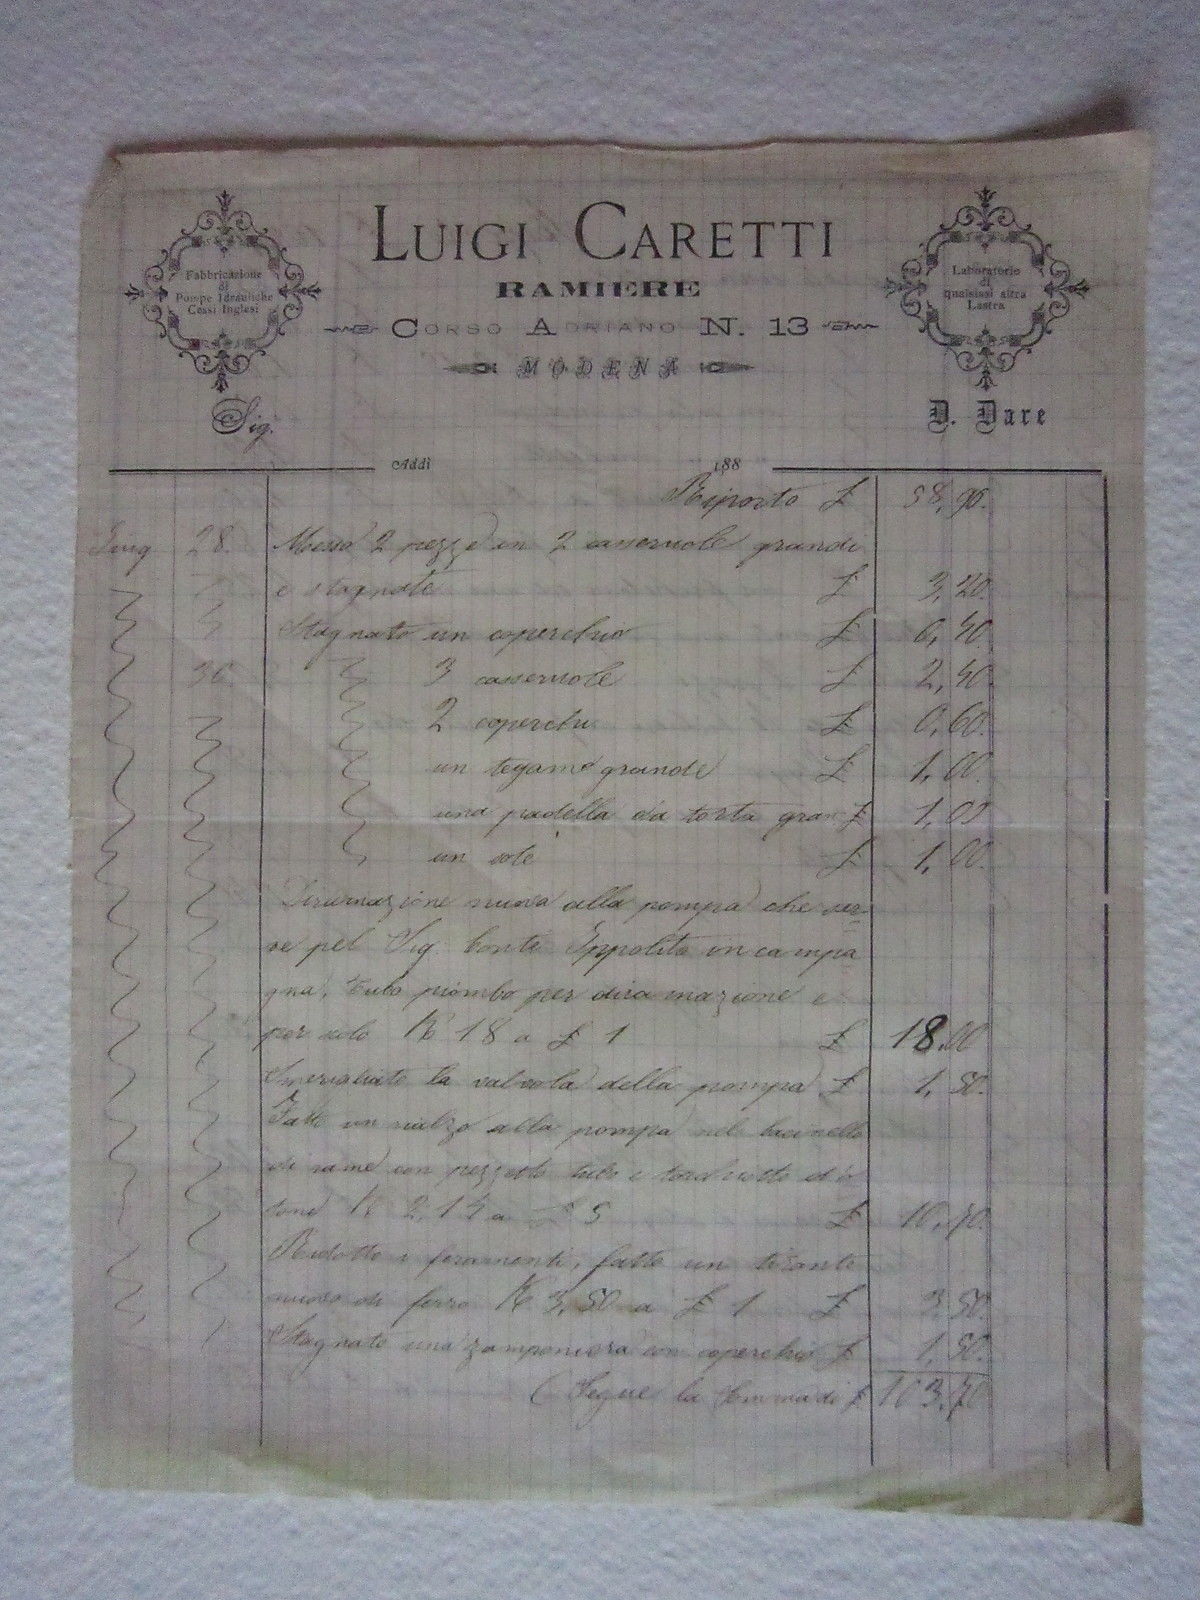 LUIGI CARETTI
RAMIERE
CORSO ADRIANO N. 13
MODENA
Fabbricazione
di
Pompe Idrauliche
Cessi Inglesi
Laboratorio
di
qualsiasi altra
Lastra
Sig.
D. Dare
Addì 188
Riporto £ 58,90.
Giug 28. Messo 2 pezze in 2 casseruole grandi
e stagnate £ 3,20.
Stagnato un coperchio £ 0,40.
30 3 casseruole £ 2,40.
2 coperchi £ 0,60.
un tegame grande £ 1,00.
una padella da torta gran £ 1,00
un £ 1,00.
Diramazione nuova alla pompa che ser-
ve pel Sig. Conte Ippolito in campa
gna, tubo piombo per diramazione e
per K 18 a £ 1 £ 18,00
Smerigliato la valvola della pompa £ 1,50.
Fatto un rialzo alla pompa nel bacinello
di rame con pezzetto tubo e d'ò
tone K 2,14 a £ 5 £ 10,70.
Ridotto i feramenti, fatto un tirante
nuovo di ferro K 3,50 a £ 1 £ 3,50.
Stagnato una zamponiera con coperchio £ 1,50.
(Segue la Somma di £ 103,70